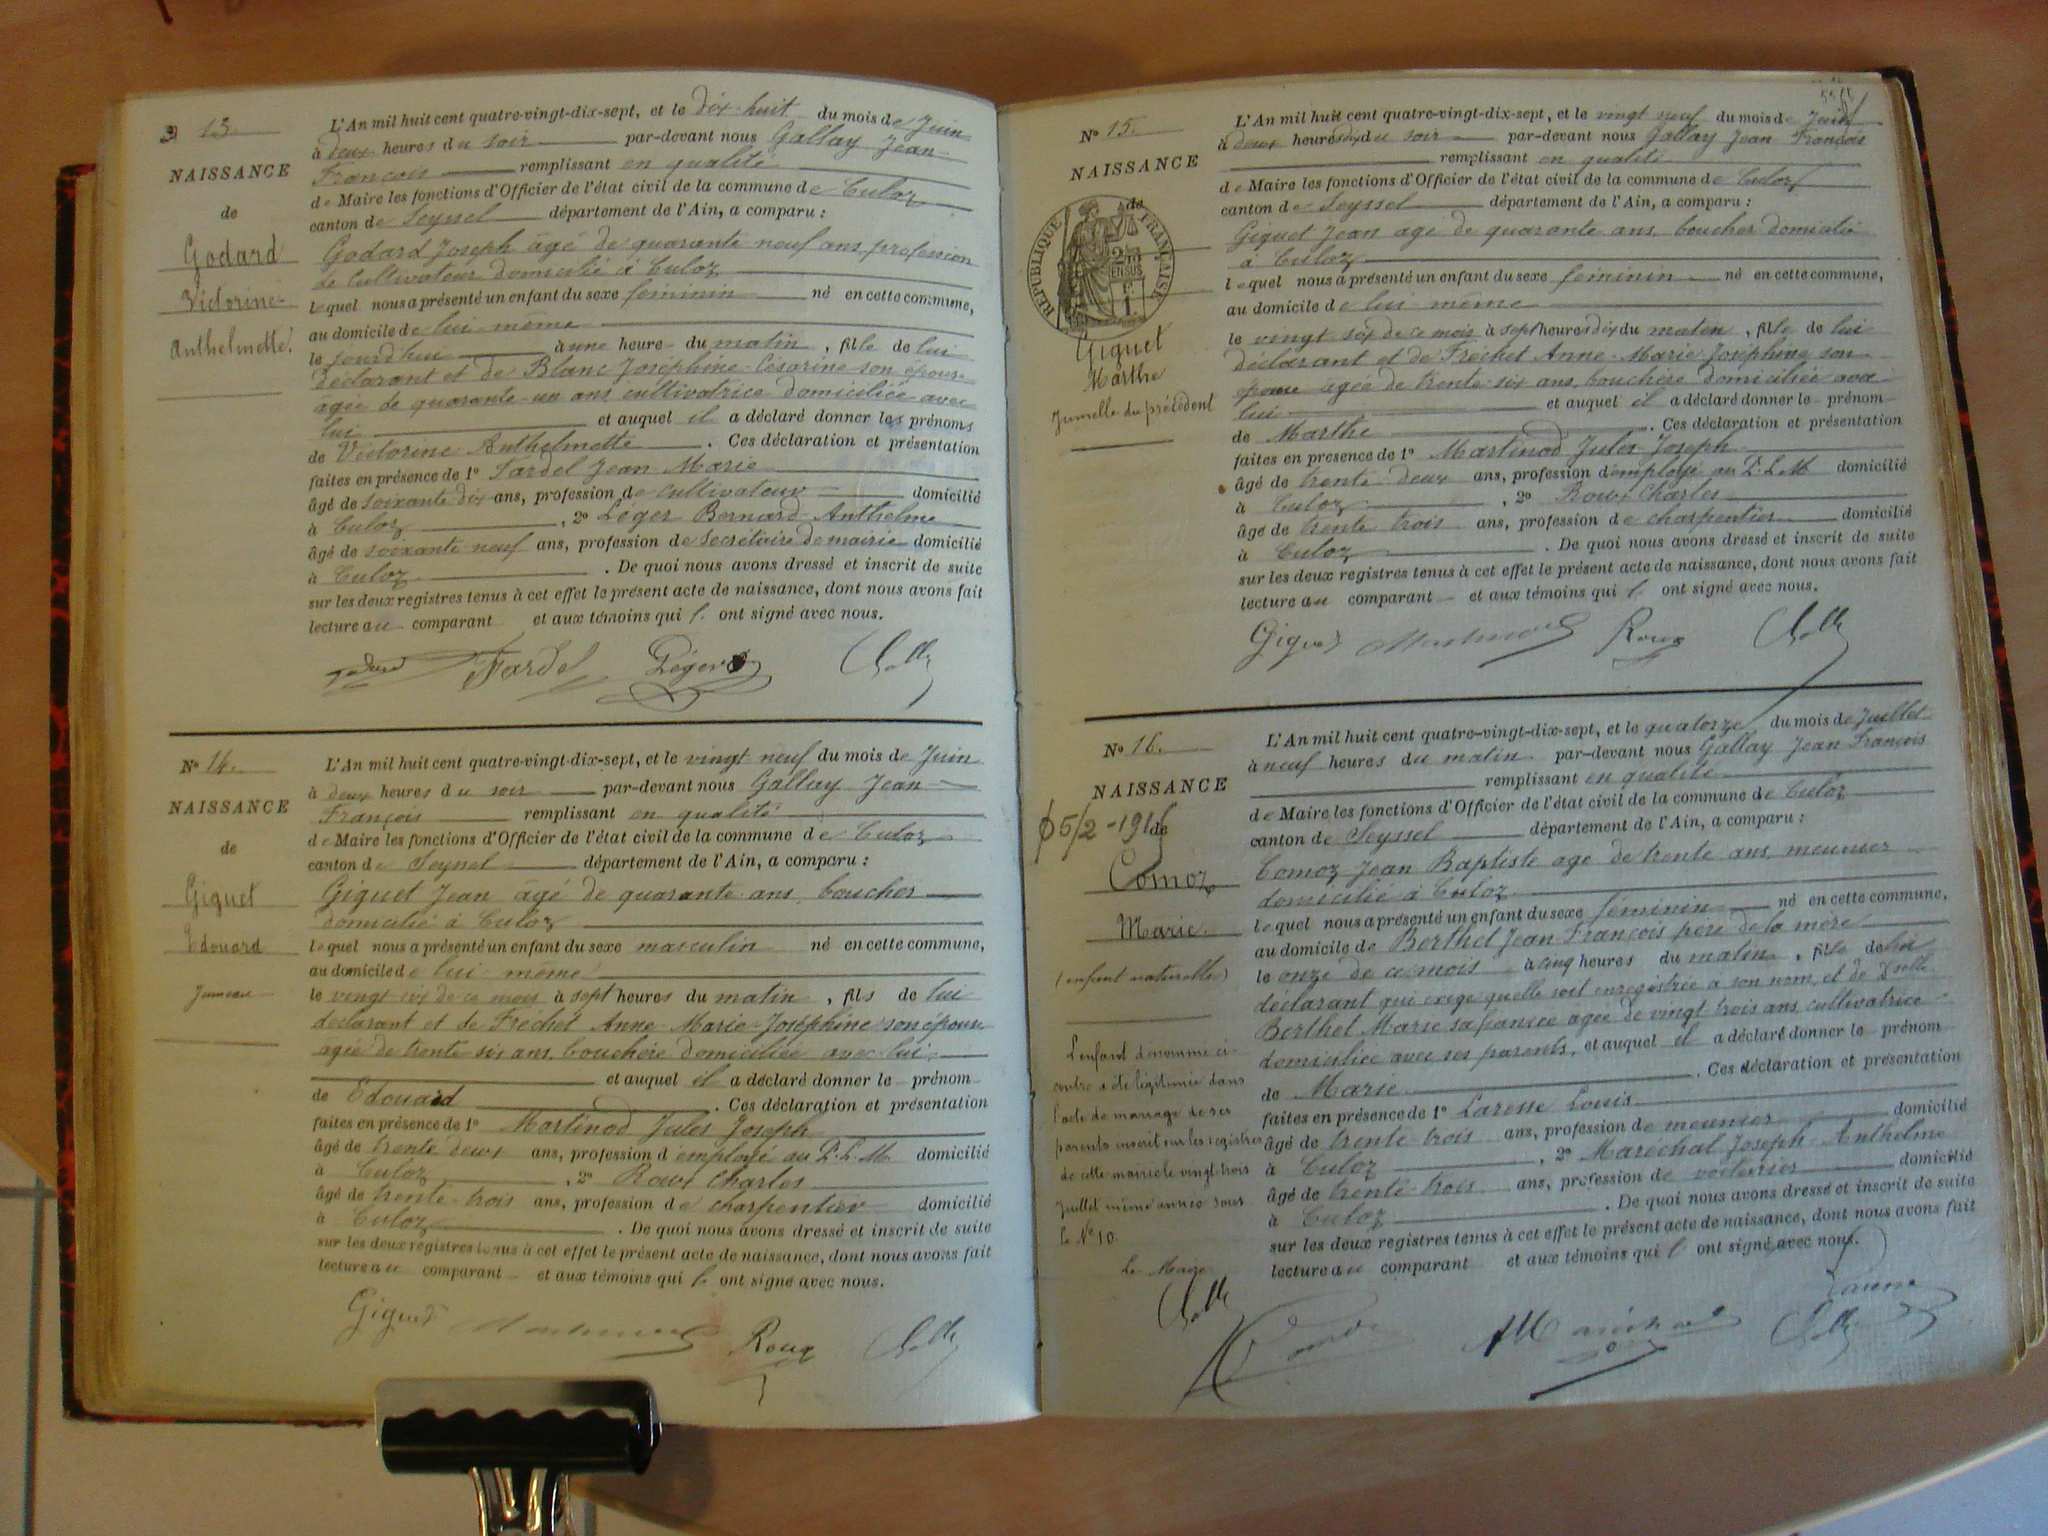 N° 13.
NAISSANCE
de
Godard
Victorine
Anthelmette
L'An mil huit cent quatre-vingt-dix-sept, et le dix-huit du mois de Juin
à deux heures du soir par-devant nous Gallay Jean
François remplissant en qualité
de Maire les fonctions d'Officier de l'état civil de la commune de Culoz
canton de Seyssel département de l'Ain, a comparu :
Godard Joseph âgé de quarante neuf ans, profession
de cultivateur domicilié à Culoz
lequel nous a présenté un enfant du sexe féminin né en cette commune,
au domicile de lui-même
le jourd'hui à une heure du matin, fille de lui
déclarant et de Blanc Joséphine Césarine son épouse
âgée de quarante-un ans cultivatrice domiciliée avec
lui et auquel il a déclaré donner les prénoms
de Victorine Anthelmette. Ces déclaration et présentation
faites en présence de 1° Tardel Jean-Marie
âgé de soixante dix ans, profession de cultivateur domicilié
à Culoz, 2° Léger Bernard Anthelme
âgé de soixante neuf ans, profession de secrétaire de mairie domicilié
à Culoz. De quoi nous avons dressé et inscrit de suite
sur les deux registres tenus à cet effet le présent acte de naissance, dont nous avons fait
lecture au comparant et aux témoins qui l'ont signé avec nous.
Tardel Léger
N° 14.
NAISSANCE
de
Giguet
Edouard
Jumeau
L'An mil huit cent quatre-vingt-dix-sept, et le vingt neuf du mois de Juin
à deux heures du soir par-devant nous Gallay Jean
François remplissant en qualité
de Maire les fonctions d'Officier de l'état civil de la commune de Culoz
canton de Seyssel département de l'Ain, a comparu :
Giguet Jean âgé de quarante ans, boucher
domicilié à Culoz
lequel nous a présenté un enfant du sexe masculin né en cette commune,
au domicile de lui-même
le vingt six de ce mois à sept heures du matin, fils de lui
déclarant et de Fréchet Anne-Marie-Joséphine son épouse
âgée de trente six ans, bouchère domiciliée avec lui
et auquel il a déclaré donner le prénom
de Edouard. Ces déclaration et présentation
faites en présence de 1° Martinod Jules Joseph
âgé de trente deux ans, profession d'employé au P.L.M. domicilié
à Culoz, 2° Roux Charles
âgé de trente-trois ans, profession de charpentier domicilié
à Culoz. De quoi nous avons dressé et inscrit de suite
sur les deux registres tenus à cet effet le présent acte de naissance, dont nous avons fait
lecture au comparant et aux témoins qui l'ont signé avec nous.
Giguet Roux
N° 15.
NAISSANCE
de
RÉPUBLIQUE FRANÇAISE
Giguet
Marthe
Jumelle du précédent
L'An mil huit cent quatre-vingt-dix-sept, et le vingt neuf du mois de Juin
à deux heures dix du soir par-devant nous Gallay Jean François
remplissant en qualité
de Maire les fonctions d'Officier de l'état civil de la commune de Culoz
canton de Seyssel département de l'Ain, a comparu :
Giguet Jean âgé de quarante ans, boucher domicilié
à Culoz
lequel nous a présenté un enfant du sexe féminin né en cette commune,
au domicile de lui même
le vingt six de ce mois à sept heures dix du matin, fille de lui
déclarant et de Fréchet Anne-Marie-Joséphine son
épouse âgée de trente-six ans, bouchère domiciliée avec
lui et auquel il a déclaré donner le prénom
de Marthe. Ces déclaration et présentation
faites en présence de 1° Martinod Jules Joseph
âgé de trente deux ans, profession d'employé au P.L.M. domicilié
à Culoz, 2° Roux Charles
âgé de trente trois ans, profession de charpentier domicilié
à Culoz. De quoi nous avons dressé et inscrit de suite
sur les deux registres tenus à cet effet le présent acte de naissance, dont nous avons fait
lecture au comparant et aux témoins qui l'ont signé avec nous.
Giguet Roux
N° 16.
NAISSANCE
5/2-1916
de
Comoz
Marie
(enfant naturelle)
L'enfant dénommé ci-
contre a été légitimée dans
l'acte de mariage de ses
parents inscrit sur les registres
de cette mairie le vingt-trois
Juillet même année sous
le N° 10.
Le Maire
L'An mil huit cent quatre-vingt-dix-sept, et le quatorze du mois de Juillet
à neuf heures du matin par-devant nous Gallay Jean François
remplissant en qualité
de Maire les fonctions d'Officier de l'état civil de la commune de Culoz
canton de Seyssel département de l'Ain, a comparu :
Comoz Jean Baptiste âgé de trente ans, meunier
domicilié à Culoz
lequel nous a présenté un enfant du sexe féminin né en cette commune,
au domicile de Berthet Jean François père de la mère
le onze de ce mois à cinq heures du matin, fille de lui
déclarant qui exige qu'elle soit enregistrée a son nom, et de Delle
Berthet Marie sa fiancée âgée de vingt trois ans, cultivatrice
domiciliée avec ses parents, et auquel il a déclaré donner le prénom
de Marie. Ces déclaration et présentation
faites en présence de 1° Louis
âgé de trente trois ans, profession de meunier domicilié
à Culoz, 2° Maréchal Joseph Anthelme
âgé de trente-trois ans, profession de voiturier domicilié
à Culoz. De quoi nous avons dressé et inscrit de suite
sur les deux registres tenus à cet effet le présent acte de naissance, dont nous avons fait
lecture au comparant et aux témoins qui l'ont signé avec nous.